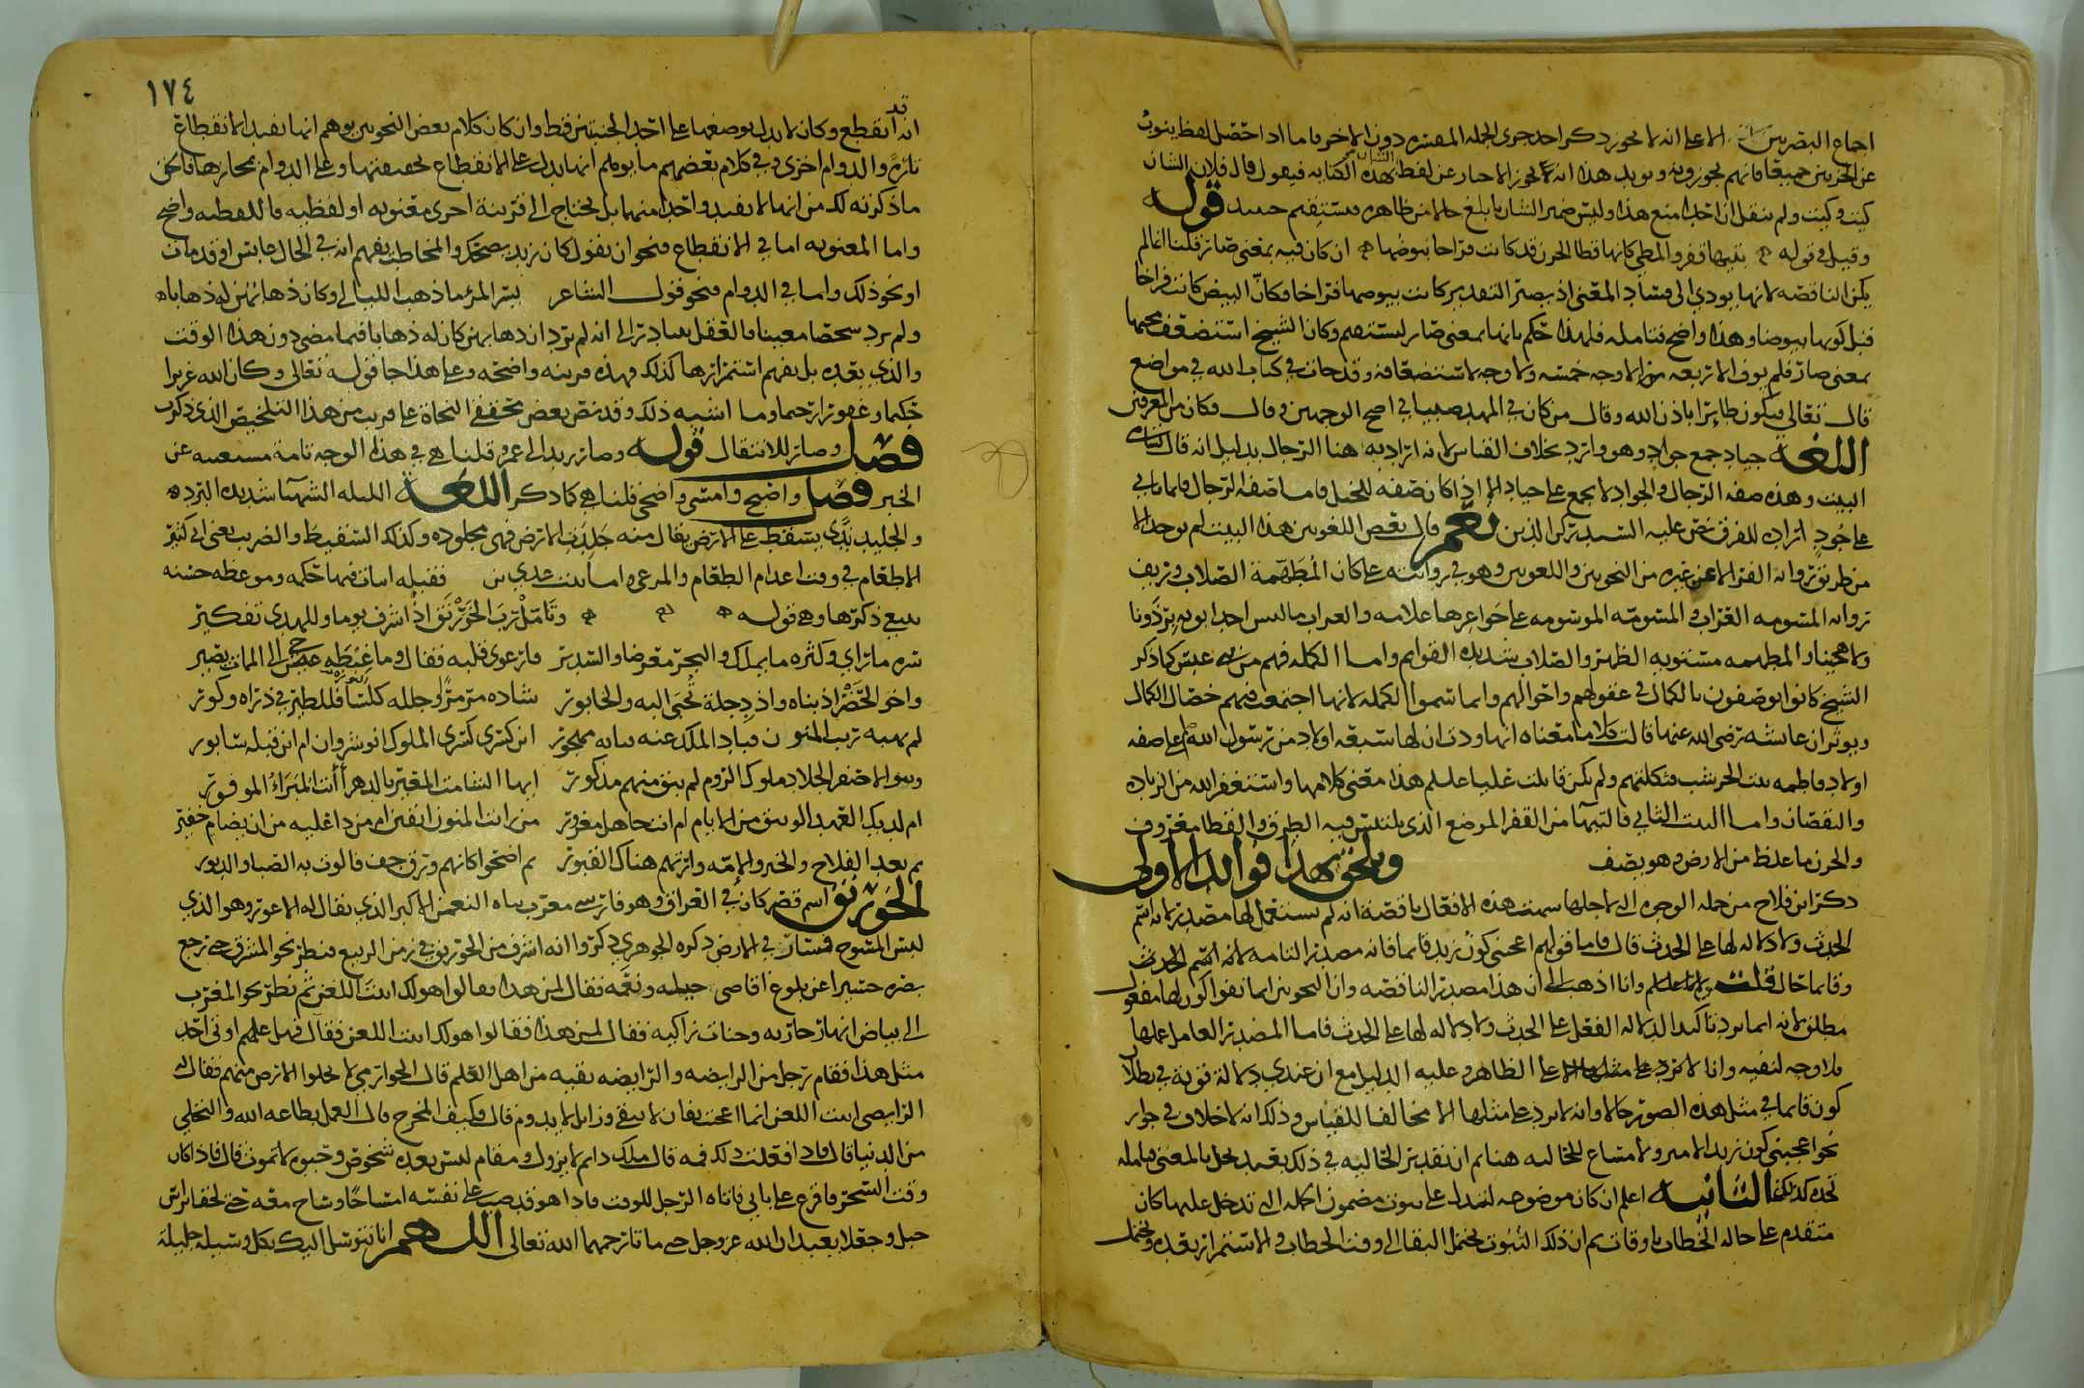 اجماع البصريين الا على انه لا يجوز ذكر احد جزي الجملة المفسره دون الاخر فاما اذا حصل لفظ ينوب
عن الجزين جميعا فانهم يجوزونه ويويد هذا انه يجوز الاخبار عن لفظ الشان بهذه الكنايه فيقول قال فلان الشان
كيت وكيت ولم ينقل ان احدا منع هذا وليس ضمير الشان بابلغ حالا من ظاهره فيستقيم حينيذ قوله
وقيل في قوله بتيها قفر والمطي كانها قطا الحزن قد كانت فراخا بيوضها ان كان فيه بمعنى صار قلنا انما لم
يكن الناقصه لانها يودي الى فساد المعنى اذ يصير التقدير كانت بيوضها فراخا فكان البيض كانت فراخا
قبل كونها بيوضا وهذا واضح فتامله فلهذا حكم بانها بمعنى صار ليستقيم وكان الشيخ استضعف مجيها
بمعنى صار فلم يوف الاربعه من الاوجه خمسه ولا وجه لاستضعافه وقد جات في كتاب الله في مواضع
قال تعالى فيكون طايرا باذن الله وقال من كان في المهد صبيا في اصح الوجهين وقال وكان من المغرقين
اللغة جياد جمع جواد وهو وارد بخلاف القياس لانه اراد به هنا الرجال بدليل انه قال
البيت وهذه صفه الرجال والجواد لا يجمع على جياد الا اذا كان صفه للخيل فاما صفه الرجال فانما ياتي
على جُودٍ اراده للفرق نص عليه السيد ركن الدين نعم قال بعض اللغويين هذا البيت لم يوجد الا
من طريق وانه الفرا الا عن غيره من النحويين واللغويين وهو في روايته على كان المُطَهَّمة الصلاب
انه المسومه العراب والمسومه الموسومه على علامه والعراب ما ليس احد ابويه بِرْذَونا
ولا هجينا والمطهمه مستويه الظهر والصلاب شديده القوايم واما الكملة فهم من عبس كما ذكر
الشيخ كانوا يوصفون بالكمال في عقولهم واحوالهم وانما سموا الكملة لانها اجتمعت فيهم خصال الكمال
ويوثر ان عايشه رضي الله عنها قالت كلاما معناه انها ودت ان لها سبعه اولاد من رسول الله على صفه
اولاد فاطمه بنت الخرشب فتكلتهم ولم يكن قابلت عليا هذا معنى كلامها واستغفر الله من الزياده
والنقصان واما البيت الثاني فالتيها من القفر الموضع الذي يلتبس فيه الطرق والقطا معروف
والحزن ما غلظ من الارض وهو يصف ويلحق بهذا فوايد الاولى
ذكر ابن فلاح من جمله الوجوه التي لاجلها سميت هذه الافعال ناقصة انه لم يستعمل لها مصدر لانه اسم
الحدث ولا دلاله لها على الحدث قال فاما قولهم اعجبني كون زيد قايما فانه مصدر التامه لانه اسم الحدث
وقايما حال قلت وانا اذهب الى ان هذا مصدر الناقصه وان النحويين انما نفوا كون لها مفعول
مطلق لانه انما يرد تاكيدا لدلاله الفعل على الحدث ولا دلاله لها على الحدث فاما المصدر العامل عملها
فلا وجه لنفيه وانا لا نرد على على الظاهر وعليه الدليل مع ان عندي دلاله قويه في بطلان
كون قايما في مثل هذه الصور حالا وانه لا يرد على مثلها الا مخالفا للقياس وذلك انه لا خلاف في جواز
نحو اعجبني كون زيد الامير ولا مساغ للحاليه هنا ثم ان تقدير الحاليه في ذلك بعيد يخل بالمعنى فتامله
تجده كذلك الثانيه اعلم ان كان موضوعه لتدل على ثبوت مضمون الجمله التي تدخل عليها كان
متقدم على حاله الخطاب باوقات ثم ان ذلك الثبوت يحتمل البقا الى وقت الخطاب والاستمرار بعده ويحتمل
١٧٤
انه قد انقطع وكان لا يدل بوضعها على احد الجنبتين قط وان كان كلام بعض النحويين يوهم انها تفيد الانقطاع
تارة والدوام اخرى وفي كلام بعضهم ما يوهم انها يدل على الانقطاع بحقيقتها وعلى الدوام بمجازها فالحق
ما ذكرته لك من انها لا تفيد واحدا منهما بل يحتاج الى قرينة اخرى معنويه او لفظيه فاللفظيه واضح
واما المعنويه اما في الانقطاع فنحو ان يقول كان زيد يضحك والمخاطب يفهم انه في الحال عابس او قد مات
او نحو ذلك واما في الدوام فنحو قول الشاعر يسر المرء ما ذهب الليالي وكان ذهابهن له ذهابا
ولم يرد شخصا معينا فالعقل يبادر الى انه لم يرد ان ذهابهن كان له ذهابا فيما مضى دون هذا الوقت
والذي بعده بل يفهم استمرارها كذلك فهذه قرينه واضحه وعلى هذا جا قوله تعالى وكان الله عزيزا
حكيما وغفورا رحيما وما اشبه ذلك وقد نص بعض محققي النحاة على قريب من هذا التلخيص الذي ذكرت
فصل وصار للانتقال قوله وصار زيد الى عمرو قلنا هي في هذا الوجه تامة مستغنيه عن
الخبر فصل واصبح وامسى واضحى قلنا هي كما ذكر اللغة الليله الشهبا شديده البرد
والجليد ندى يسقط على الارض يقال منه جلدت الارض فهي مجلوده وكذلك السقيط والضريب يعني اني كثير
الاطعام في وقت اعدام الطعام والمرعى اما بيت عدي بن فقبله ابيات فيها حكمه وموعظه حسنه
ينبغي ذكرها وهي قوله وتامل ربَّ الخَوَرْنَق اذ اشرف يوما وللهدى تفكير
سره ما راى وكثره ما يملك والبحر معرضا والسدير فارعوى قلبه فقال وما غِبْطَةُ حيٍّ الى الممات يصير
واخو الحَضْر اذ بناه واذ دجلة تُجبَى اليه والخابور شاده مرمرا وجلله كلسا فللطير في ذراه وكور
لم يهبه ريب المنون فباد الملك عنه فبابه مهجور اين كسرى كسرى الملوك انوشروان ام اين قبله سابور
وبنو الاصفر الكرام ملوك الروم لم يبق منهم مذكور ايها الشامت المعير بالدهر أأنت المبرَّاءُ الموفور
ام لديك العهد الوثيق من الايام ام انت جاهل مغرور من رايت المنون ابقين ام من ذا عليه من ان يضام خفير
ثم بعد الفلاح والخير والامه وارتهم هناك القبور ثم اضحوا كانهم ورق جف فالوت به الصبا والدبور
الخورنق اسم قصر كان في العراق وهو فارسي معرب بناه النعمن الاكبر الذي يقال له الاعور وهو الذي
لبس المسوح فساح في الارض ذكره الجوهري ذكروا انه اشرف من الخورنق في زمن الربيع فنظر نحو المشرق حتى رجع
بصره حسيرا عن بلوغ اقاصي ونعمه فقال لمن هذا فقالوا هو لك ابيت اللعن ثم نظر نحو المغرب
الى بياض انهار جاريه وجنات زاكيه فقال لمن هذا فقالوا هو لك ابيت اللعن فقال فهل علمتم اوتي احد
مثل هذا فقام رجل من الرابضه والرابضه بقيه من اهل العلم قال الخوارزمي لا تخلوا الارض منهم فقال
الرابضي ابيت اللعن انما اعجبت بفان لا يبقى وزايل لا يدوم قال فكيف المخرج قال العمل بطاعه الله والتخلي
من الدنيا قال فاذا فعلت ذلك فمه قال ملك دايم لا يزول ومقام ليس بعده شخوص وحيوه لا تموت قال فاذا كان
وقت السحر فاقرع على بابي فاتاه الرجل للوقت فاذا هو قد صب على نفسه امساحا وساح معه حتى لحقا براس
جبل وجعلا يعبدان الله عز وجل حتى ماتا رحمهما الله تعالى اللهم انا نتوسل اليك بكل وسيله جليلة